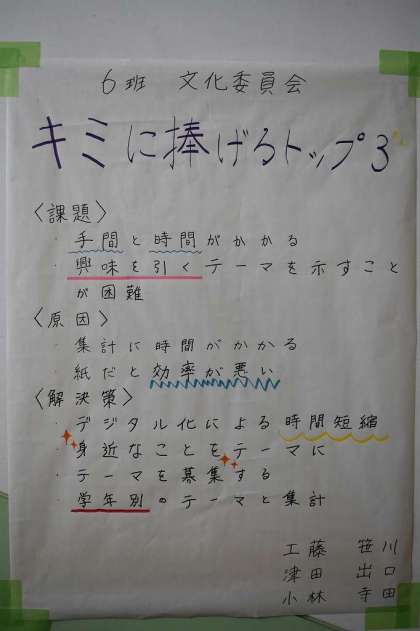 6班 文化委員会
キミに捧げるトップ3
〈課題〉
・手間と時間がかかる
・興味を引くテーマを示すこと
が困難
〈原因〉
・集計に時間がかかる
・紙だと効率が悪い
〈解決策〉
・デジタル化による時間短縮
・身近なことをテーマに
・テーマを募集する
・学年別のテーマと集計
工藤 笹川
津田 出口
小林 寺田